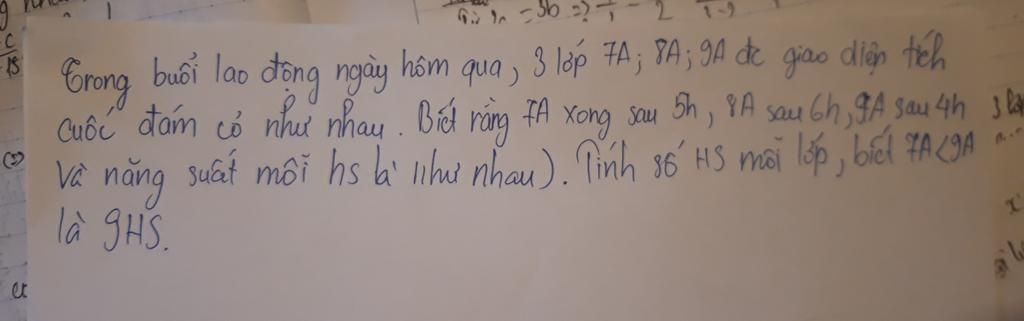 = 36 => 
Trong buổi lao động ngày hôm qua, 3 lớp 7A; 8A; 9A đc giao diện tích
cuốc đám cỏ như nhau. Biết rằng 7A xong sau 5h, 8A sau 6h, 9A sau 4h
và năng suất mỗi hs là như nhau). Tính số HS mỗi lớp, biết 7A<9A
là 9HS.